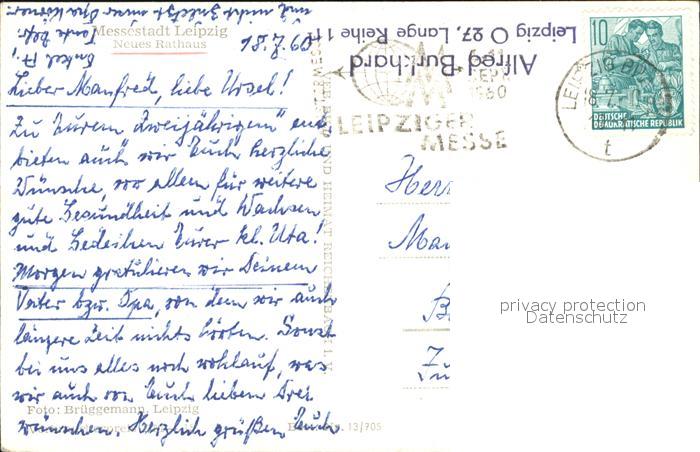 Messestadt Leipzig
Neues Rathaus
18.7.60
Lieber Manfred, liebe Ursel!
Zu Eurem "Zweijährigen" ent-
bieten auch wir Euch herzliche
Wünsche, vor allem für weitere
gute Gesundheit und Wachsen
und Gedeihen Eurer kl. Uta!
Morgen gratulieren wir Deinem
Vater bzw. Opa, von dem wir auch
längere Zeit nichts hörten. Sonst
bei uns alles noch wohlauf, was
wir auch von Euch lieben Drei
wünschen. Herzlich grüßen Euch
Foto: Brüggemann, Leipzig
13/705
Alfred Burkhard
Leipzig O 27, Lange Reihe 11
SEPT.
1960
LEIPZIGER
MESSE
LEIPZIG
18.7.
t
10
DEUTSCHE
DEMOKRATISCHE REPUBLIK
Herr
Ma
privacy protection
Datenschutz